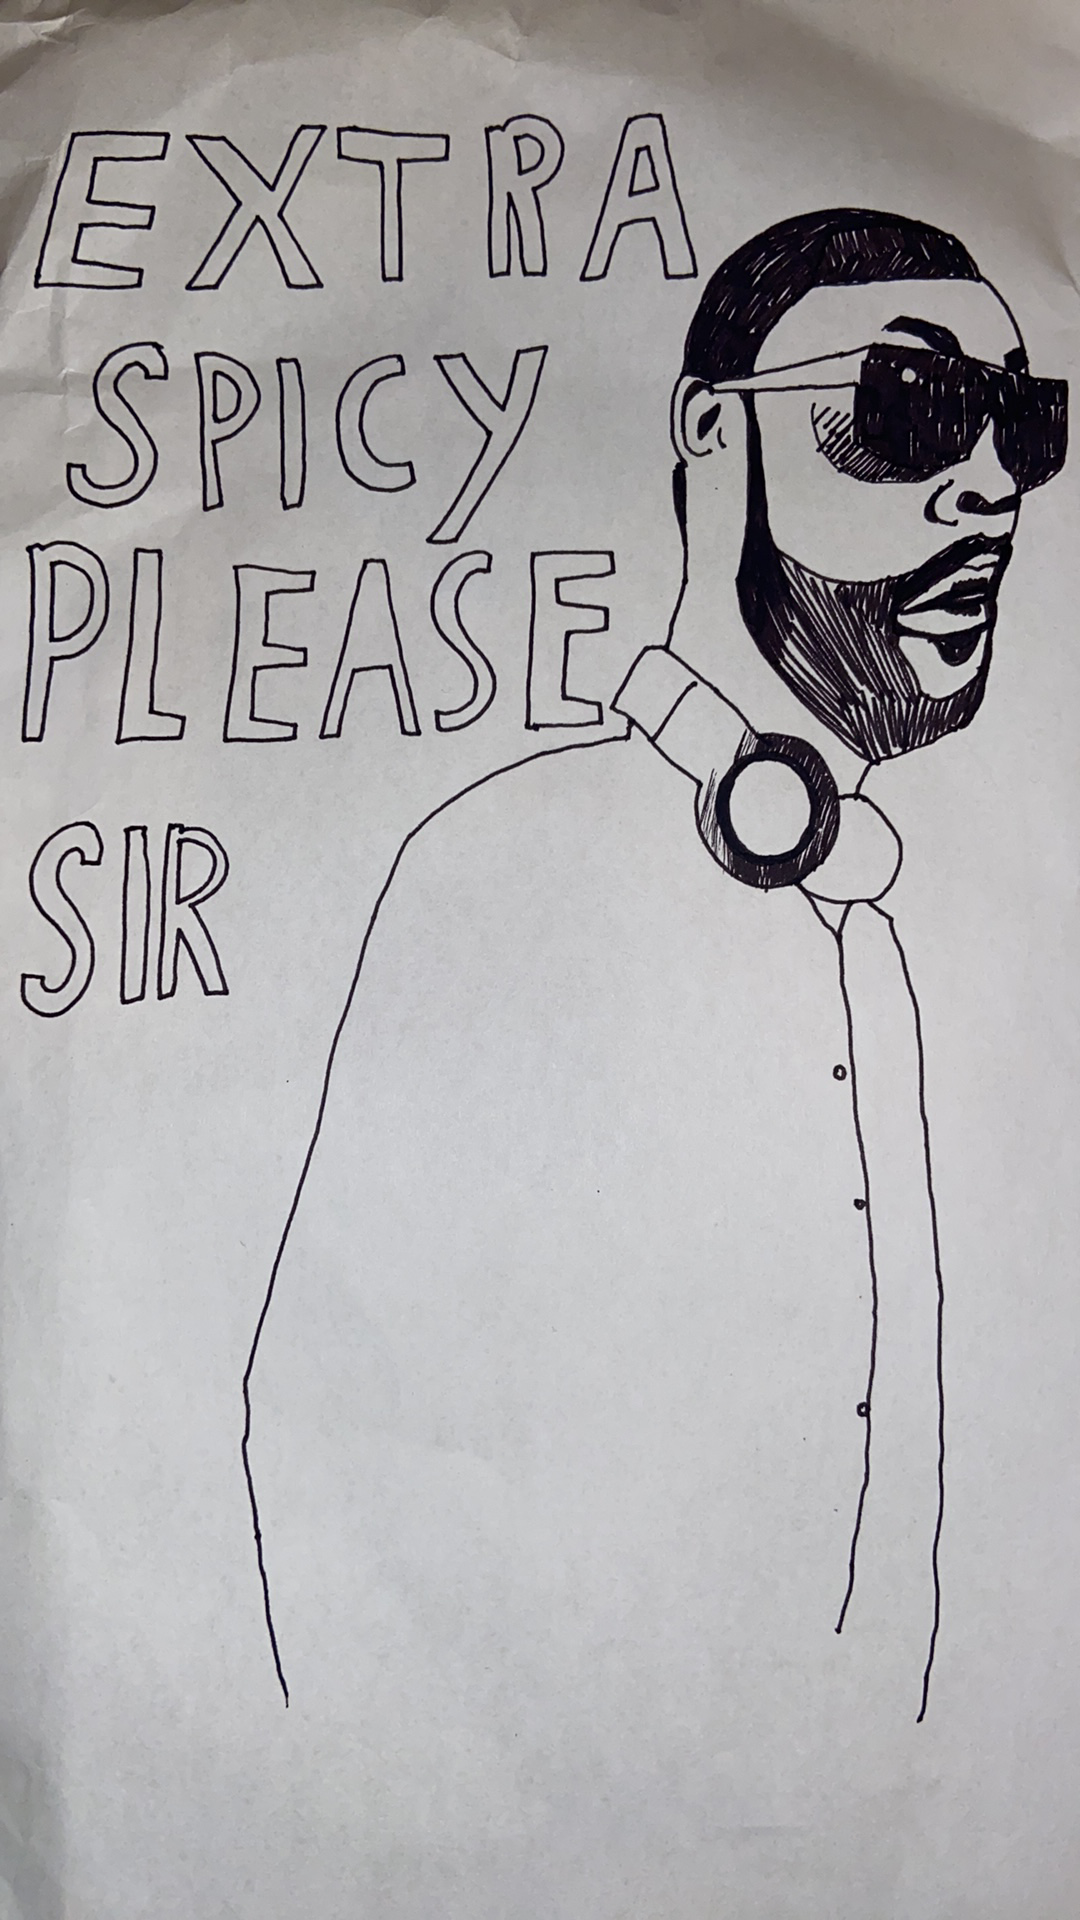 EXTRA
SPICY
PLEASE
SIR